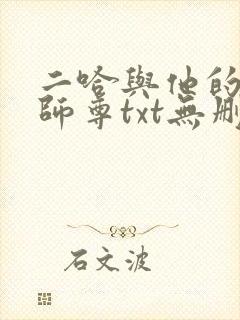 二哈與他的
師尊txt無刪
石文波